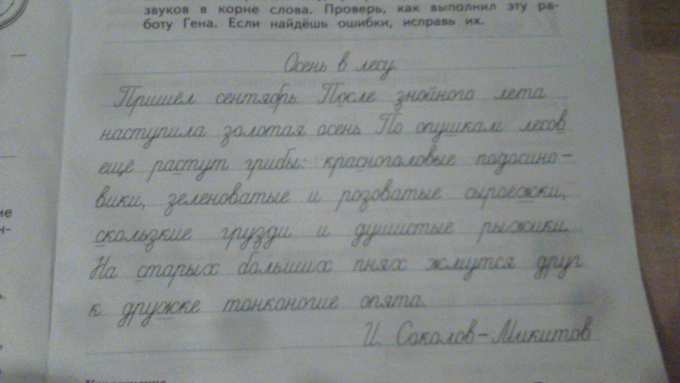 звуков в корне слова. Проверь, как выполнил эту ра-
боту Гена. Если найдёшь ошибки, исправь их.
Осень в лесу
Пришёл сентябрь. После знойного лета
наступила золотая осень. По опушкам лесов
ещё растут грибы: красноголовые подосино-
вики, зеленоватые и розоватые сыроежки,
скользкие грузди и душистые рыжики.
На старых больших пнях жмутся друг
к дружке тонконогие опята.
И. Соколов-Микитов